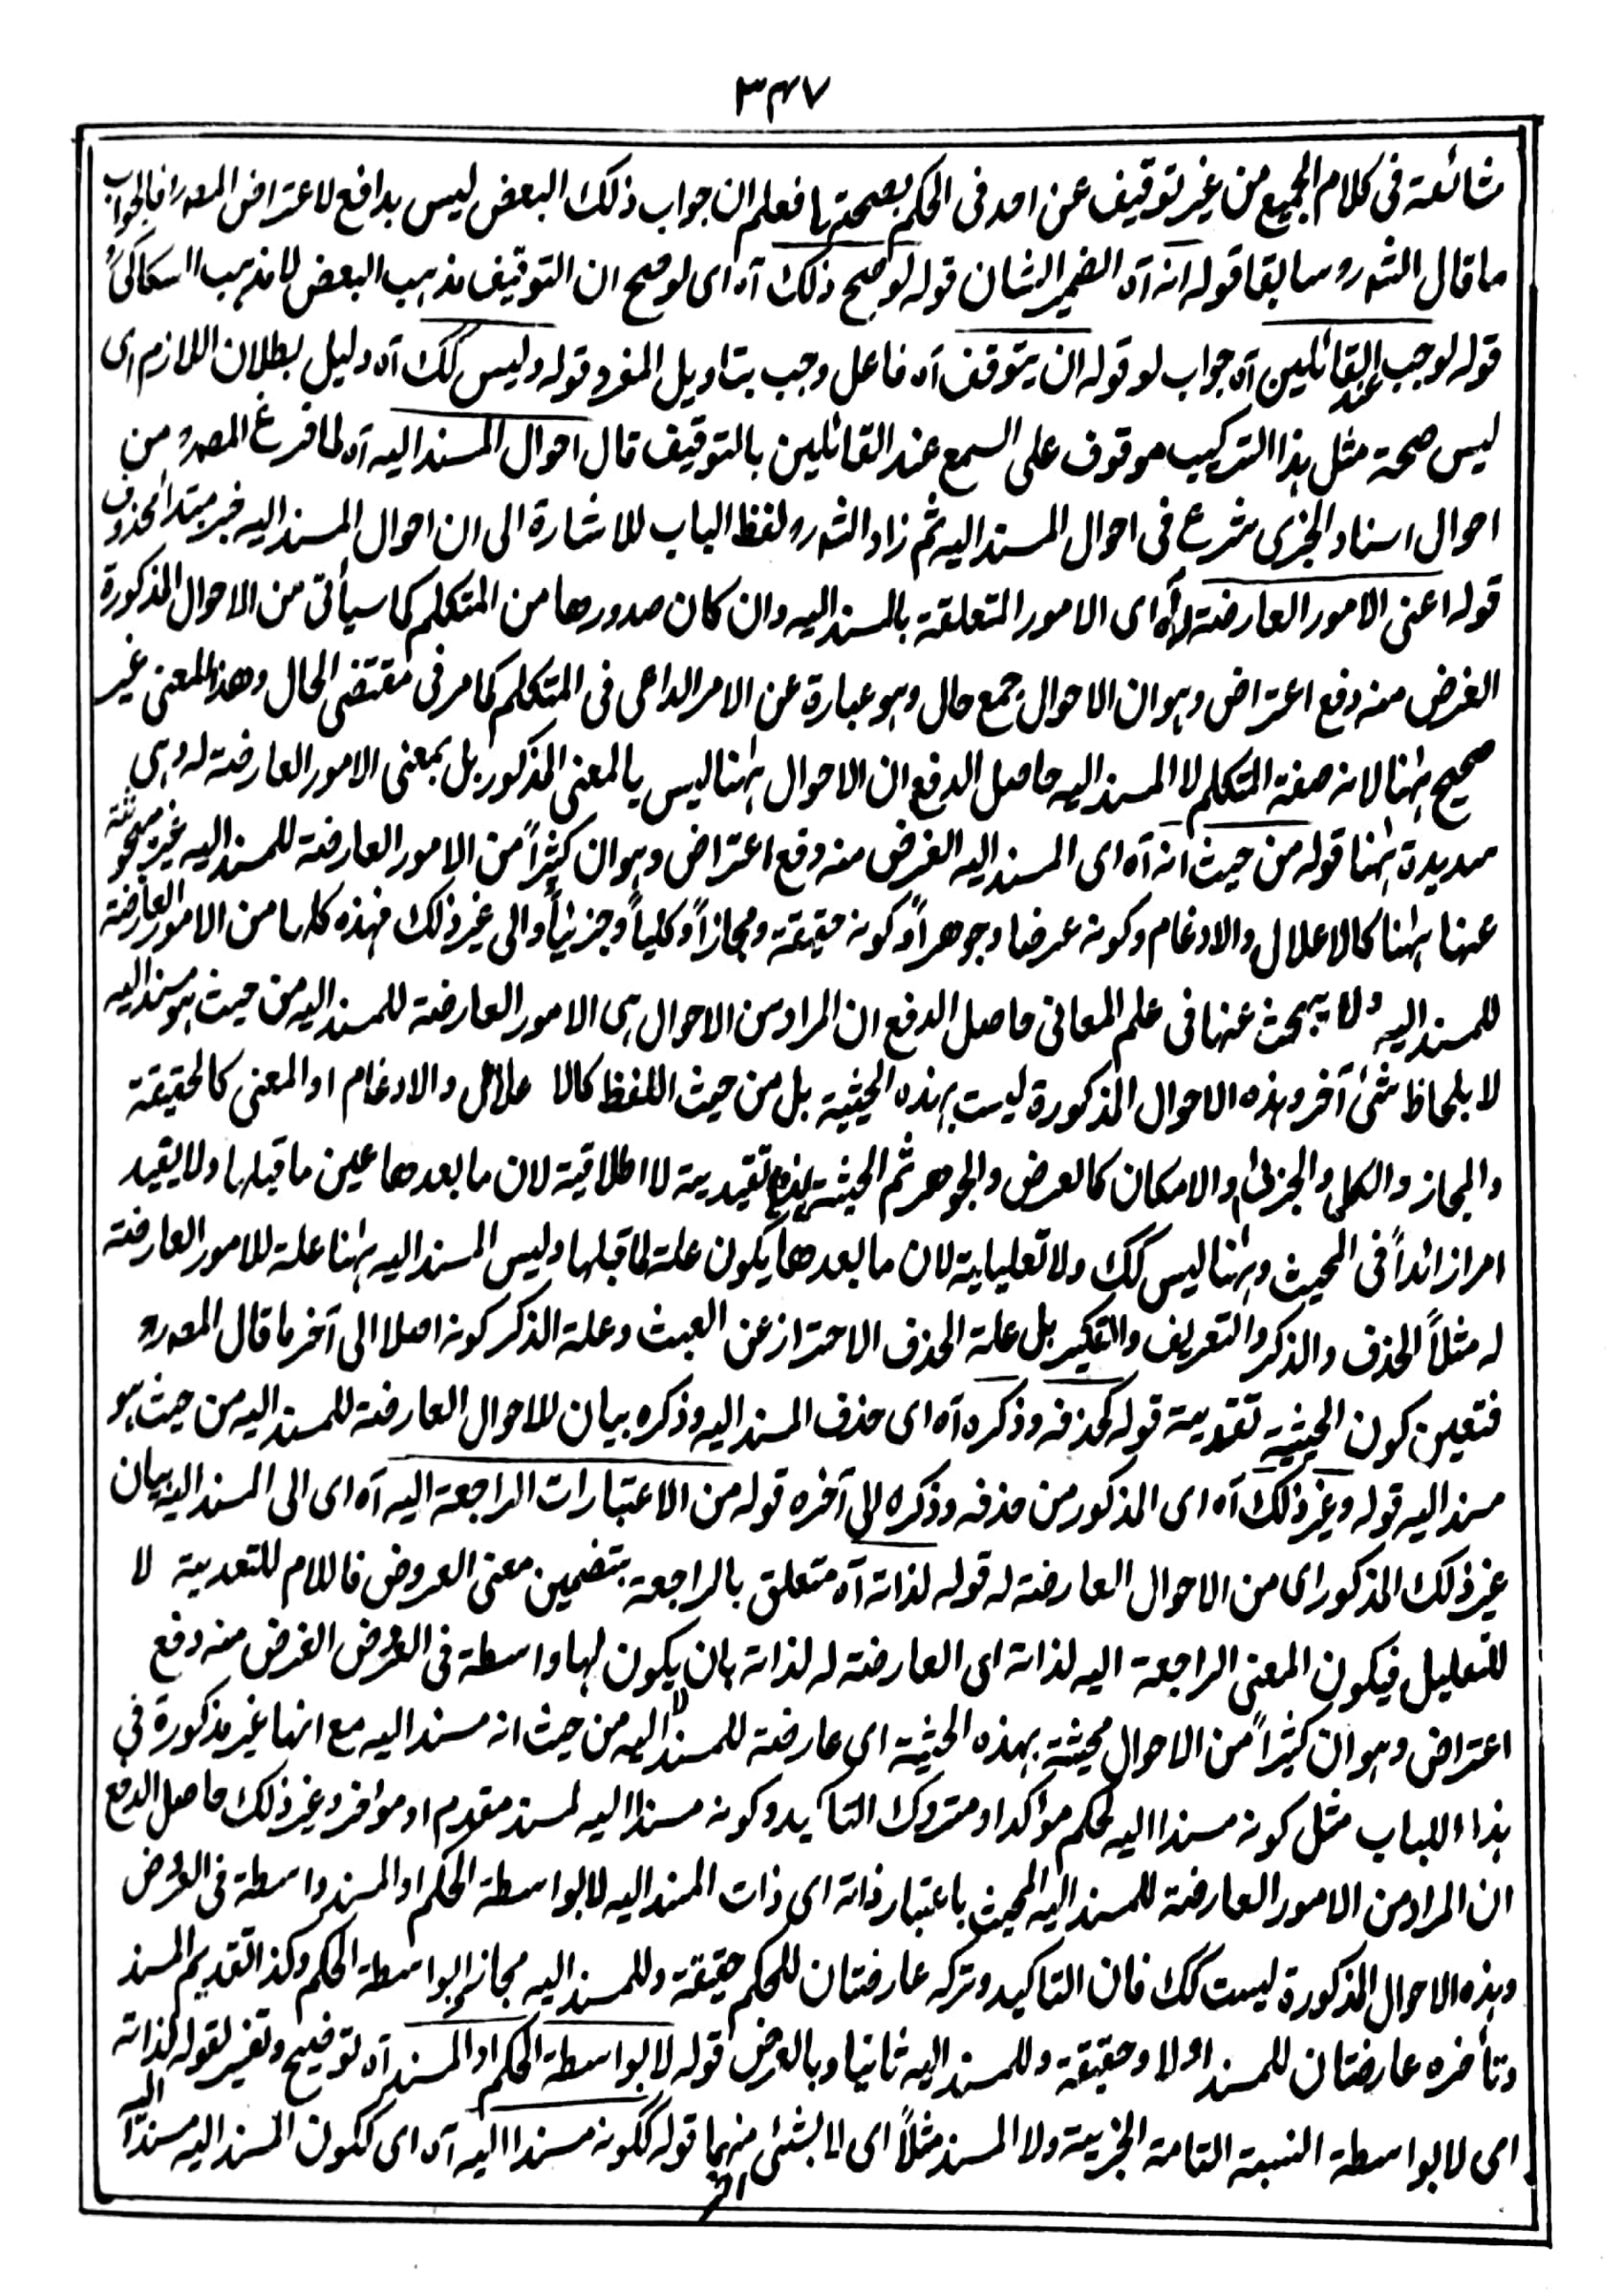 ٣٤٧
شائعة فى كلام الجميع من غير توقيف عن احد فى الحكم بصحتها فعلم ان جواب ذلك البعض ليس بدافع لاعتراض المصر فالجواب
ما قال الشر سابقا قوله انه آه الضمير الشان قوله لو صح ذلك آه اى لو صح ان التوقيف مذهب البعض لا مذهب السكاكى
قوله لوجب عند القائلين آه جواب لو قوله ان يتوقف آه فاعل وجب بتاويل المفرد قوله وليس كك آه دليل بطلان اللازم اى
ليس صحة مثل هذا التركيب موقوف على السمع عند القائلين بالتوقيف قال احوال المسند اليه آه لما فرغ المصر من
احوال اسناد الخبرى شرع فى احوال المسند اليه ثم زاد الشر لفظ الباب للاشارة الى ان احوال المسند اليه خبر مبتدا محذوف
قوله اعنى الامور العارضة له آه اى الامور المتعلقة بالمسند اليه وان كان صدورها من المتكلم كما سيأتى من الاحوال المذكورة
الغرض منه دفع اعتراض وهو ان الاحوال جمع حال وهو عبارة عن الامر الداعى فى المتكلم كما مر فى مقتضى الحال وهذا المعنى غير
صحيح ههنا لانه صفة المتكلم لا المسند اليه حاصل الدفع ان الاحوال ههنا ليس بالمعنى المذكور بل بمعنى الامور العارضة له وهى
سديدة ههنا قوله من حيث انه آه اى المسند اليه الغرض منه دفع اعتراض وهو ان كثيراً من الامور العارضة للمسند اليه غير مبحوثة
عنها ههنا كالاعلال والادغام وكونه عرضا وجوهراً وكونه حقيقة ومجازاً وكلياً وجزئياً والى غير ذلك فهذه كلها من الامور العارضة
للمسند اليه ولا يبحث عنها فى علم المعانى حاصل الدفع ان المراد من الاحوال هى الامور العارضة للمسند اليه من حيث هو مسند اليه
لا بلحاظ شئ آخر وهذه الاحوال المذكورة ليست بهذه الحيثية بل من حيث اللفظ كالا علال والادغام او المعنى كالحقيقة
والمجاز والكلى والجزئى او الامكان كالعرض والجوهر ثم الحيثية هذه تقييدية لا اطلاقية لان ما بعدها عين ما قبلها ولا يقيد
امرا زائداً فى المحيث وههنا ليس كك ولا تعليلية لان ما بعدها يكون علة لما قبلها وليس المسند اليه ههنا علة للامور العارضة
له مثلاً الحذف والذكر والتعريف والتنكير بل علة الحذف الاحتراز عن العبث وعلة الذكر كونه اصلا الى آخر ما قال المصر
فتعين كون الحيثية تقييدية قوله كحذفه وذكره آه اى حذف المسند اليه وذكره بيان للاحوال العارضة للمسند اليه من حيث هو
مسند اليه قوله وغير ذلك آه اى المذكور من حذفه وذكره الى آخره قوله من الاعتبارات الراجعة اليه آه اى الى المسند اليه بيان
غير ذلك المذكور اى من الاحوال العارضة له قوله لذاته آه متعلق بالراجعة بتضمين معنى العروض فاللام للتعدية لا
للتعليل فيكون المعنى الراجعة اليه لذاته اى العارضة له لذاته بان لا يكون لها واسطة فى العروض الغرض منه دفع
اعتراض وهو ان كثيراً من الاحوال محيثة بهذه الحيثية اى عارضة للمسند اليه من حيث انه مسند اليه مع انها غير مذكورة فى
هذا الباب مثل كونه مسندا اليه لحكم مؤكد او متروك التاكيد وكونه مسندا اليه لمسند مقدم او مؤخر وغير ذلك حاصل الدفع
ان المراد من الامور العارضة للمسند اليه المحيث باعتبار ذاته اى ذات المسند اليه لا بواسطة الحكم او المسند واسطة فى العروض
وهذه الاحوال المذكورة ليست كك فان التاكيد وتركه عارضتان للحكم حقيقة وللمسند اليه مجازا بواسطة الحكم وكذا تقديم المسند
وتأخره عارضتان للمسند اولا وحقيقة وللمسند اليه ثانيا وبالعرض قوله لا بواسطة الحكم او المسند آه توضيح وتفسير لقوله لذاته
اى لا بواسطة النسبة التامة الخبرية ولا المسند مثلاً اى لا بشئ منهما قوله ككونه مسندا اليه آه اى ككون المسند اليه مسندا اليه